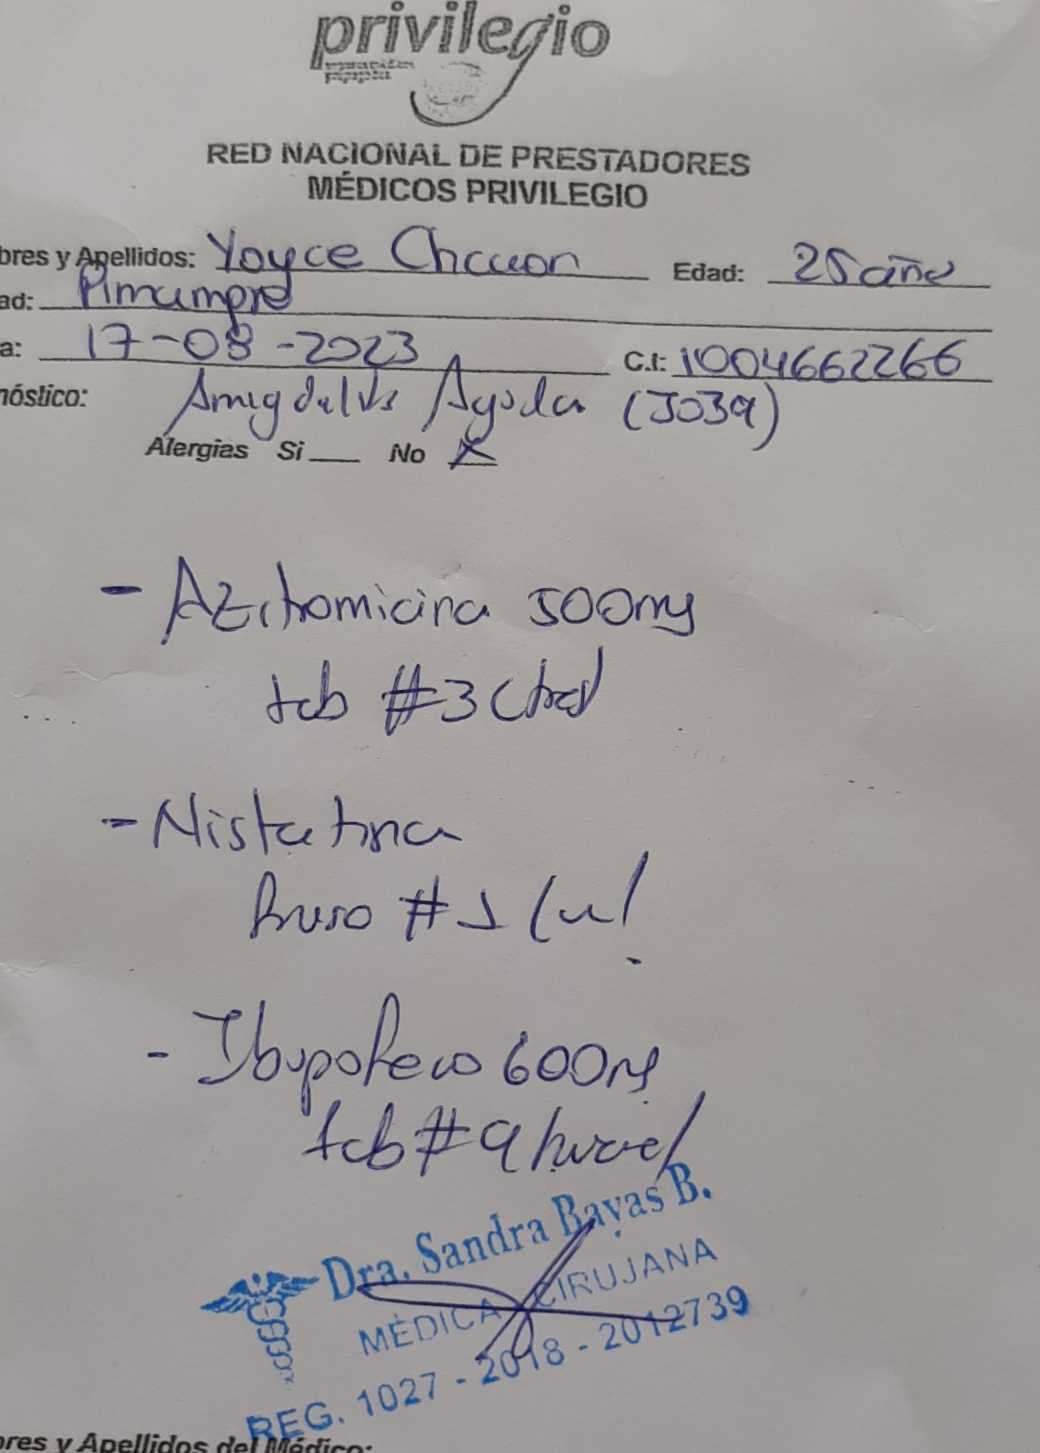 privilegio
RED NACIONAL DE PRESTADORES
MÉDICOS PRIVILEGIO
bres y Apellidos: Yoyce Edad: 25 año
ad: Pimampiro
a: 17-08-2023 C.I: 1004662266
nóstico: Amigdalitis Aguda (J039)
Alergias Si No X
- Azitromicina 500mg
tab #3 (tres)
- Nistatina
frasco #1 (un)
- Ibuprofeno 600mg
tab #9 (nueve)
Dra. Sandra Bayas B.
MÉDICA CIRUJANA
REG. 1027 - 2018 - 2012739
bres y Apellidos del Médico: